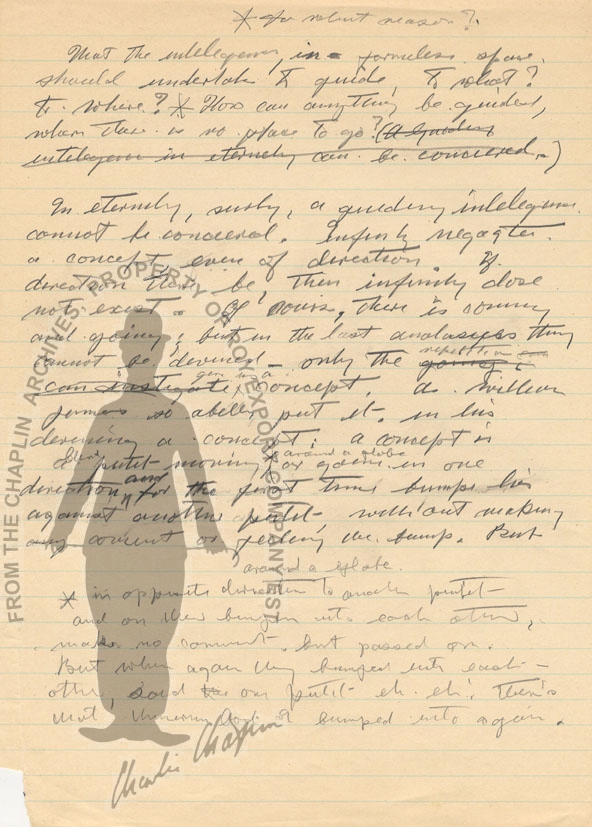 * for what reason?
That the intelegence, in formless space
should undertake to guide, to what?
to where? * How can anything be guided,
when there is no place to go? (A guiding
intelegence in eternity can be concieved.)
In eternity, surely, a guiding intelegence
cannot be concieved. Infinity negates
a concept even of direction. If
direction there be, then infinity dose
not exist. Of cours, there is coming
and going, but in the last analasyes they
cannot be divined - only the
repetition can
can concept, as William
James so abelly put it in his
devining a concept: a concept is
around a globe
polit moving or going in one
direction and for the first time bumps
against another polit, without making
any coment or feeling the bump. But
around a globe.
* in opposite direction to another polit
and on their bumping into each other,
makes no comment, but passed on.
But when again they bumped into each
other, said the one polit eh eh! there's
that bumped into again.
Charlie Chaplin
FROM THE CHAPLIN ARCHIVES, PROPERTY OF ROY EXPORT COMPANY EST.